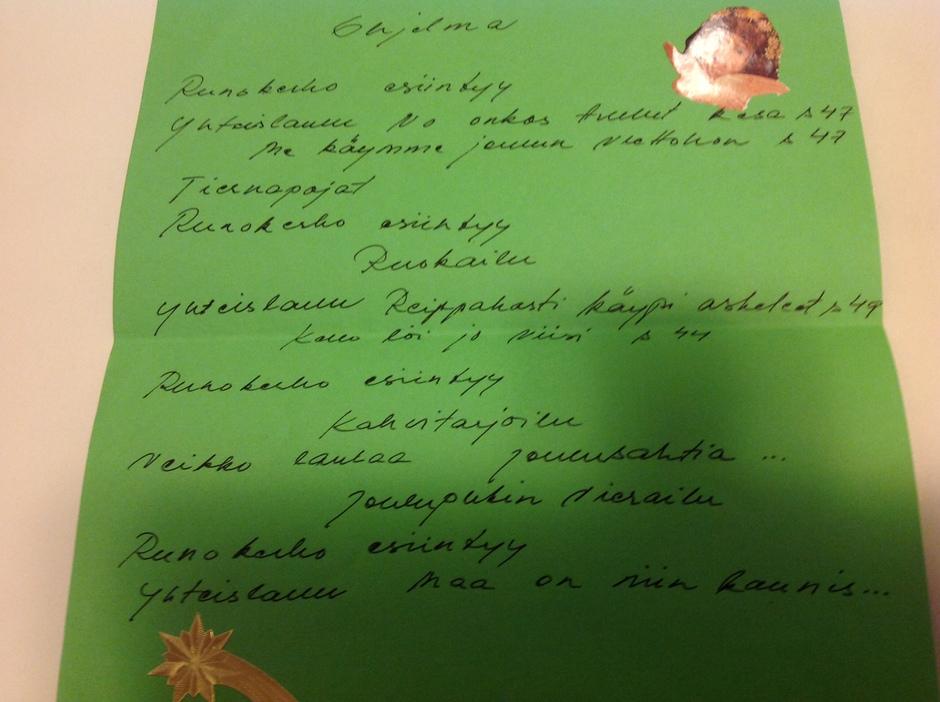 Ohjelma
Runokerho esiintyy
Yhteislaulu No onkos tullut kesä s 47
Me käymme joulun viettohon s 47
Tiernapojat
Runokerho esiintyy
Ruokailu
Yhteislaulu Reippahasti käypi askeleet s 49
Kello löi jo viisi s 44
Runokerho esiintyy
Kahvitarjoilu
Veikko laulaa Joulusahtia ...
Joulupukin vierailu
Runokerho esiintyy
Yhteislaulu Maa on niin kaunis...